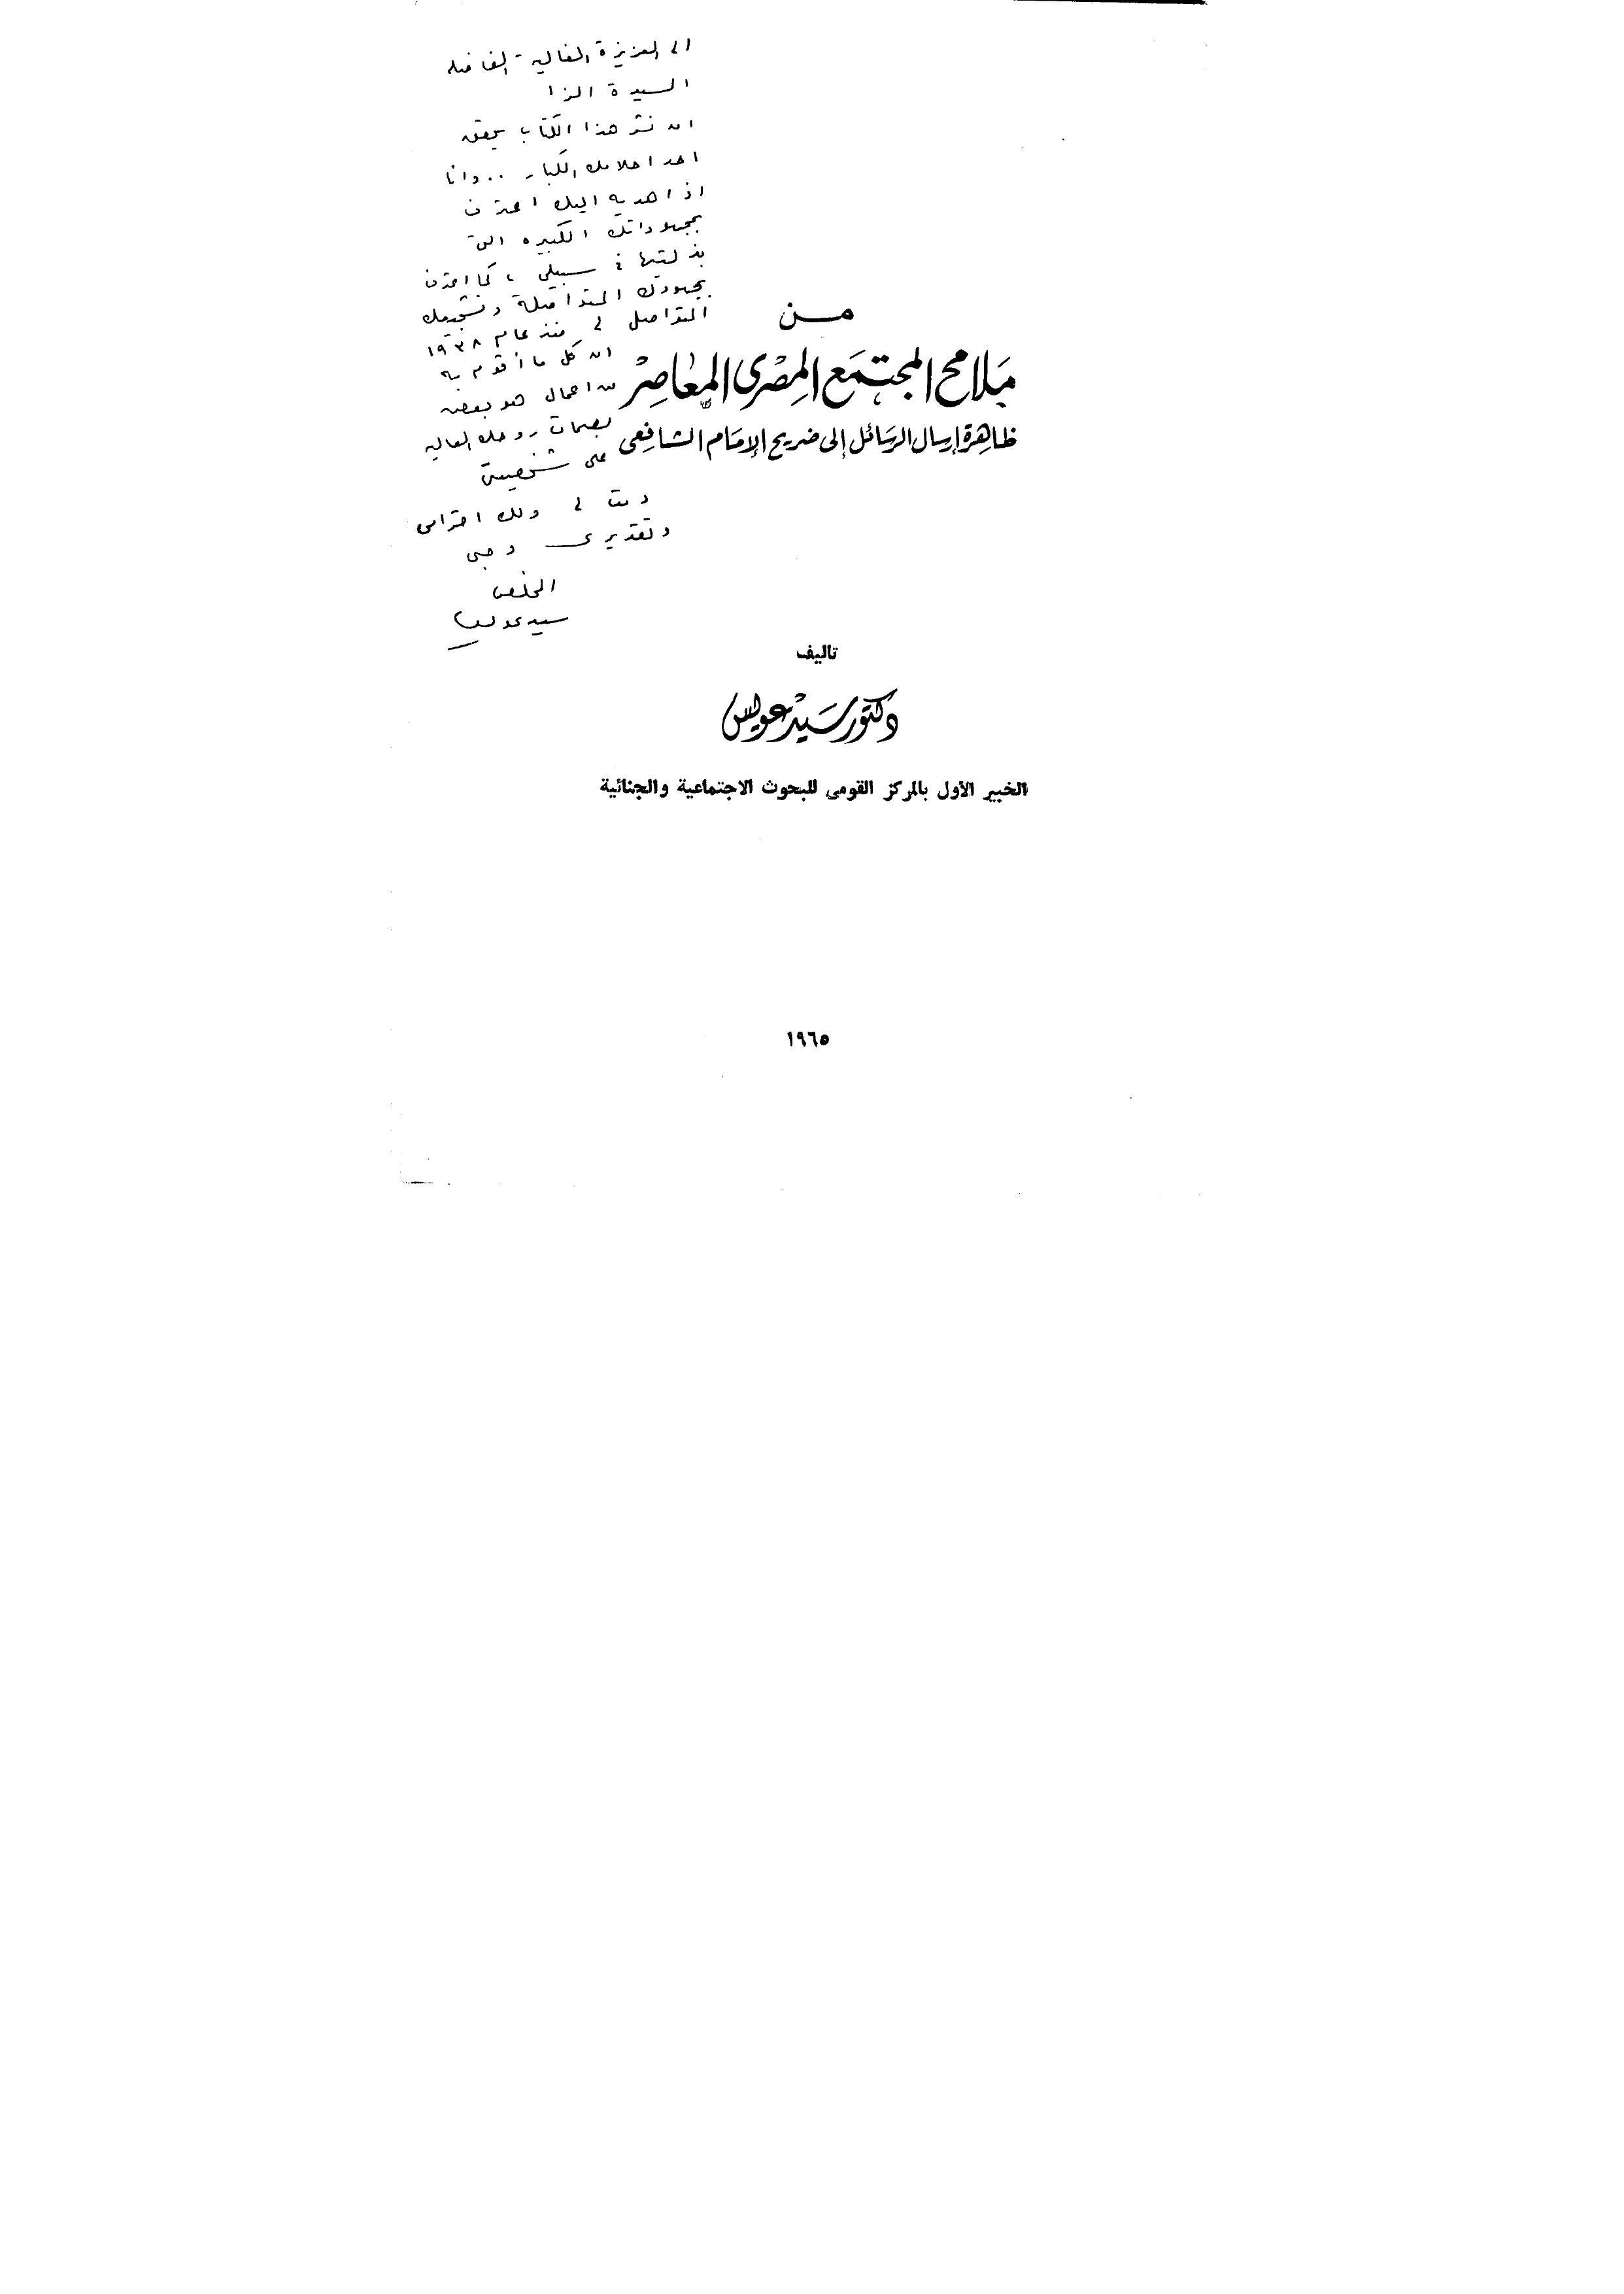 الى العزيزة الغالية الفاضلة
السيدة الزا
ان نشر هذا الكتاب يحقق
احد احلامك الكبار .. وانا
اذ اهديه اليك اعترف
بمجهوداتك الكبيره التى
بذلتها فى سبيلى ، كما اعترف
بجهودك المتواصلة وتشجيعك
المتواصل لى منذ عام ١٩٣٨
ان كل ما أقوم به
من اعمال هو بعض
بصمات روحك العاليه
على شخصيتى
دمت لى ولك احترامى
وتقديرى وحبى
المخلص
سيد عويس
مـن
ملامح المجتمع المصرى المعاصر
ظاهرة إرسال الرسائل إلى ضريح الإمام الشافعى
تاليف
دكتور سيد عويس
الخبير الأول بالمركز القومى للبحوث الاجتماعية والجنائية
١٩٦٥